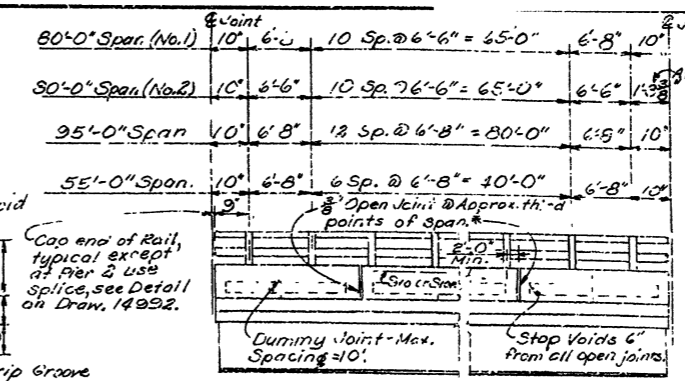 ℄ Joint
80'-0" Span (No.1) 10" 10 Sp. @ 6'-6" = 65'-0" 6'-8" 10"
80'-0" Span (No.2) 10" 6'-6" 10 Sp. @ 6'-6" = 65'-0" 6'-6"
95'-0" Span 10" 6'-8" 12 Sp. @ 6'-8" = 80'-0" 6'-8" 10"
55'-0" Span. 10" 6'-8" 6 Sp. @ 6'-8" = 40'-0" 6'-8" 10"
9"
3/8" Open Joint @ Approx. third
points of span.*
Cap end of Rail,
typical except
at Pier 2 use
splice, see Detail
on Draw. 14992.
2'-0"
Min.
Dummy Joint - Max.
Spacing = 10'.
Stop Voids 6"
from all open joints.
rip Groove